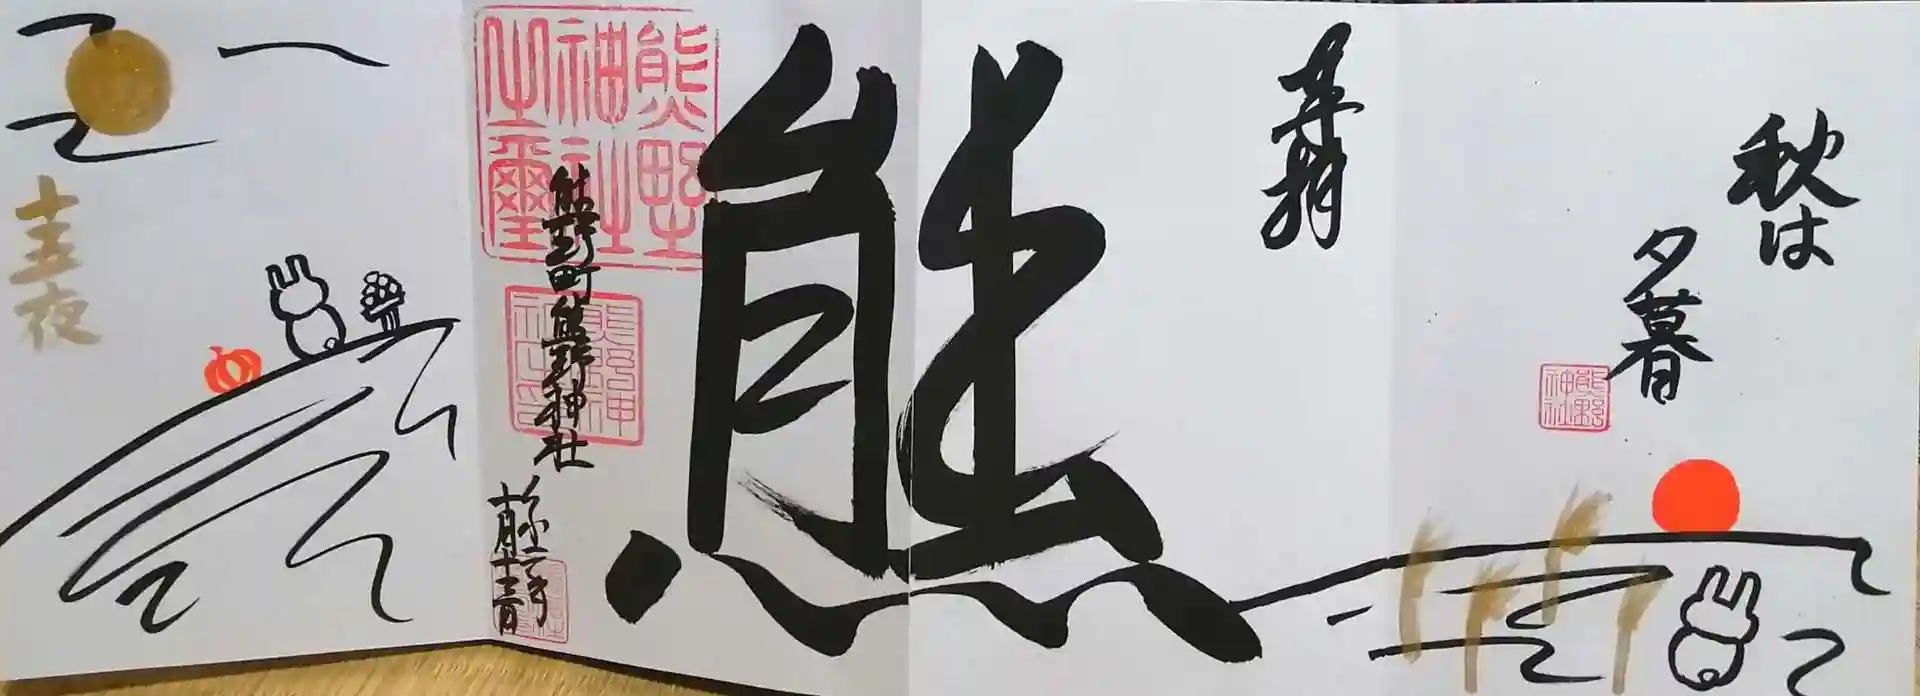 秋は
夕暮
奉拝
熊野
神社
熊
熊野
神社
之璽
熊野町熊野神社
十五夜